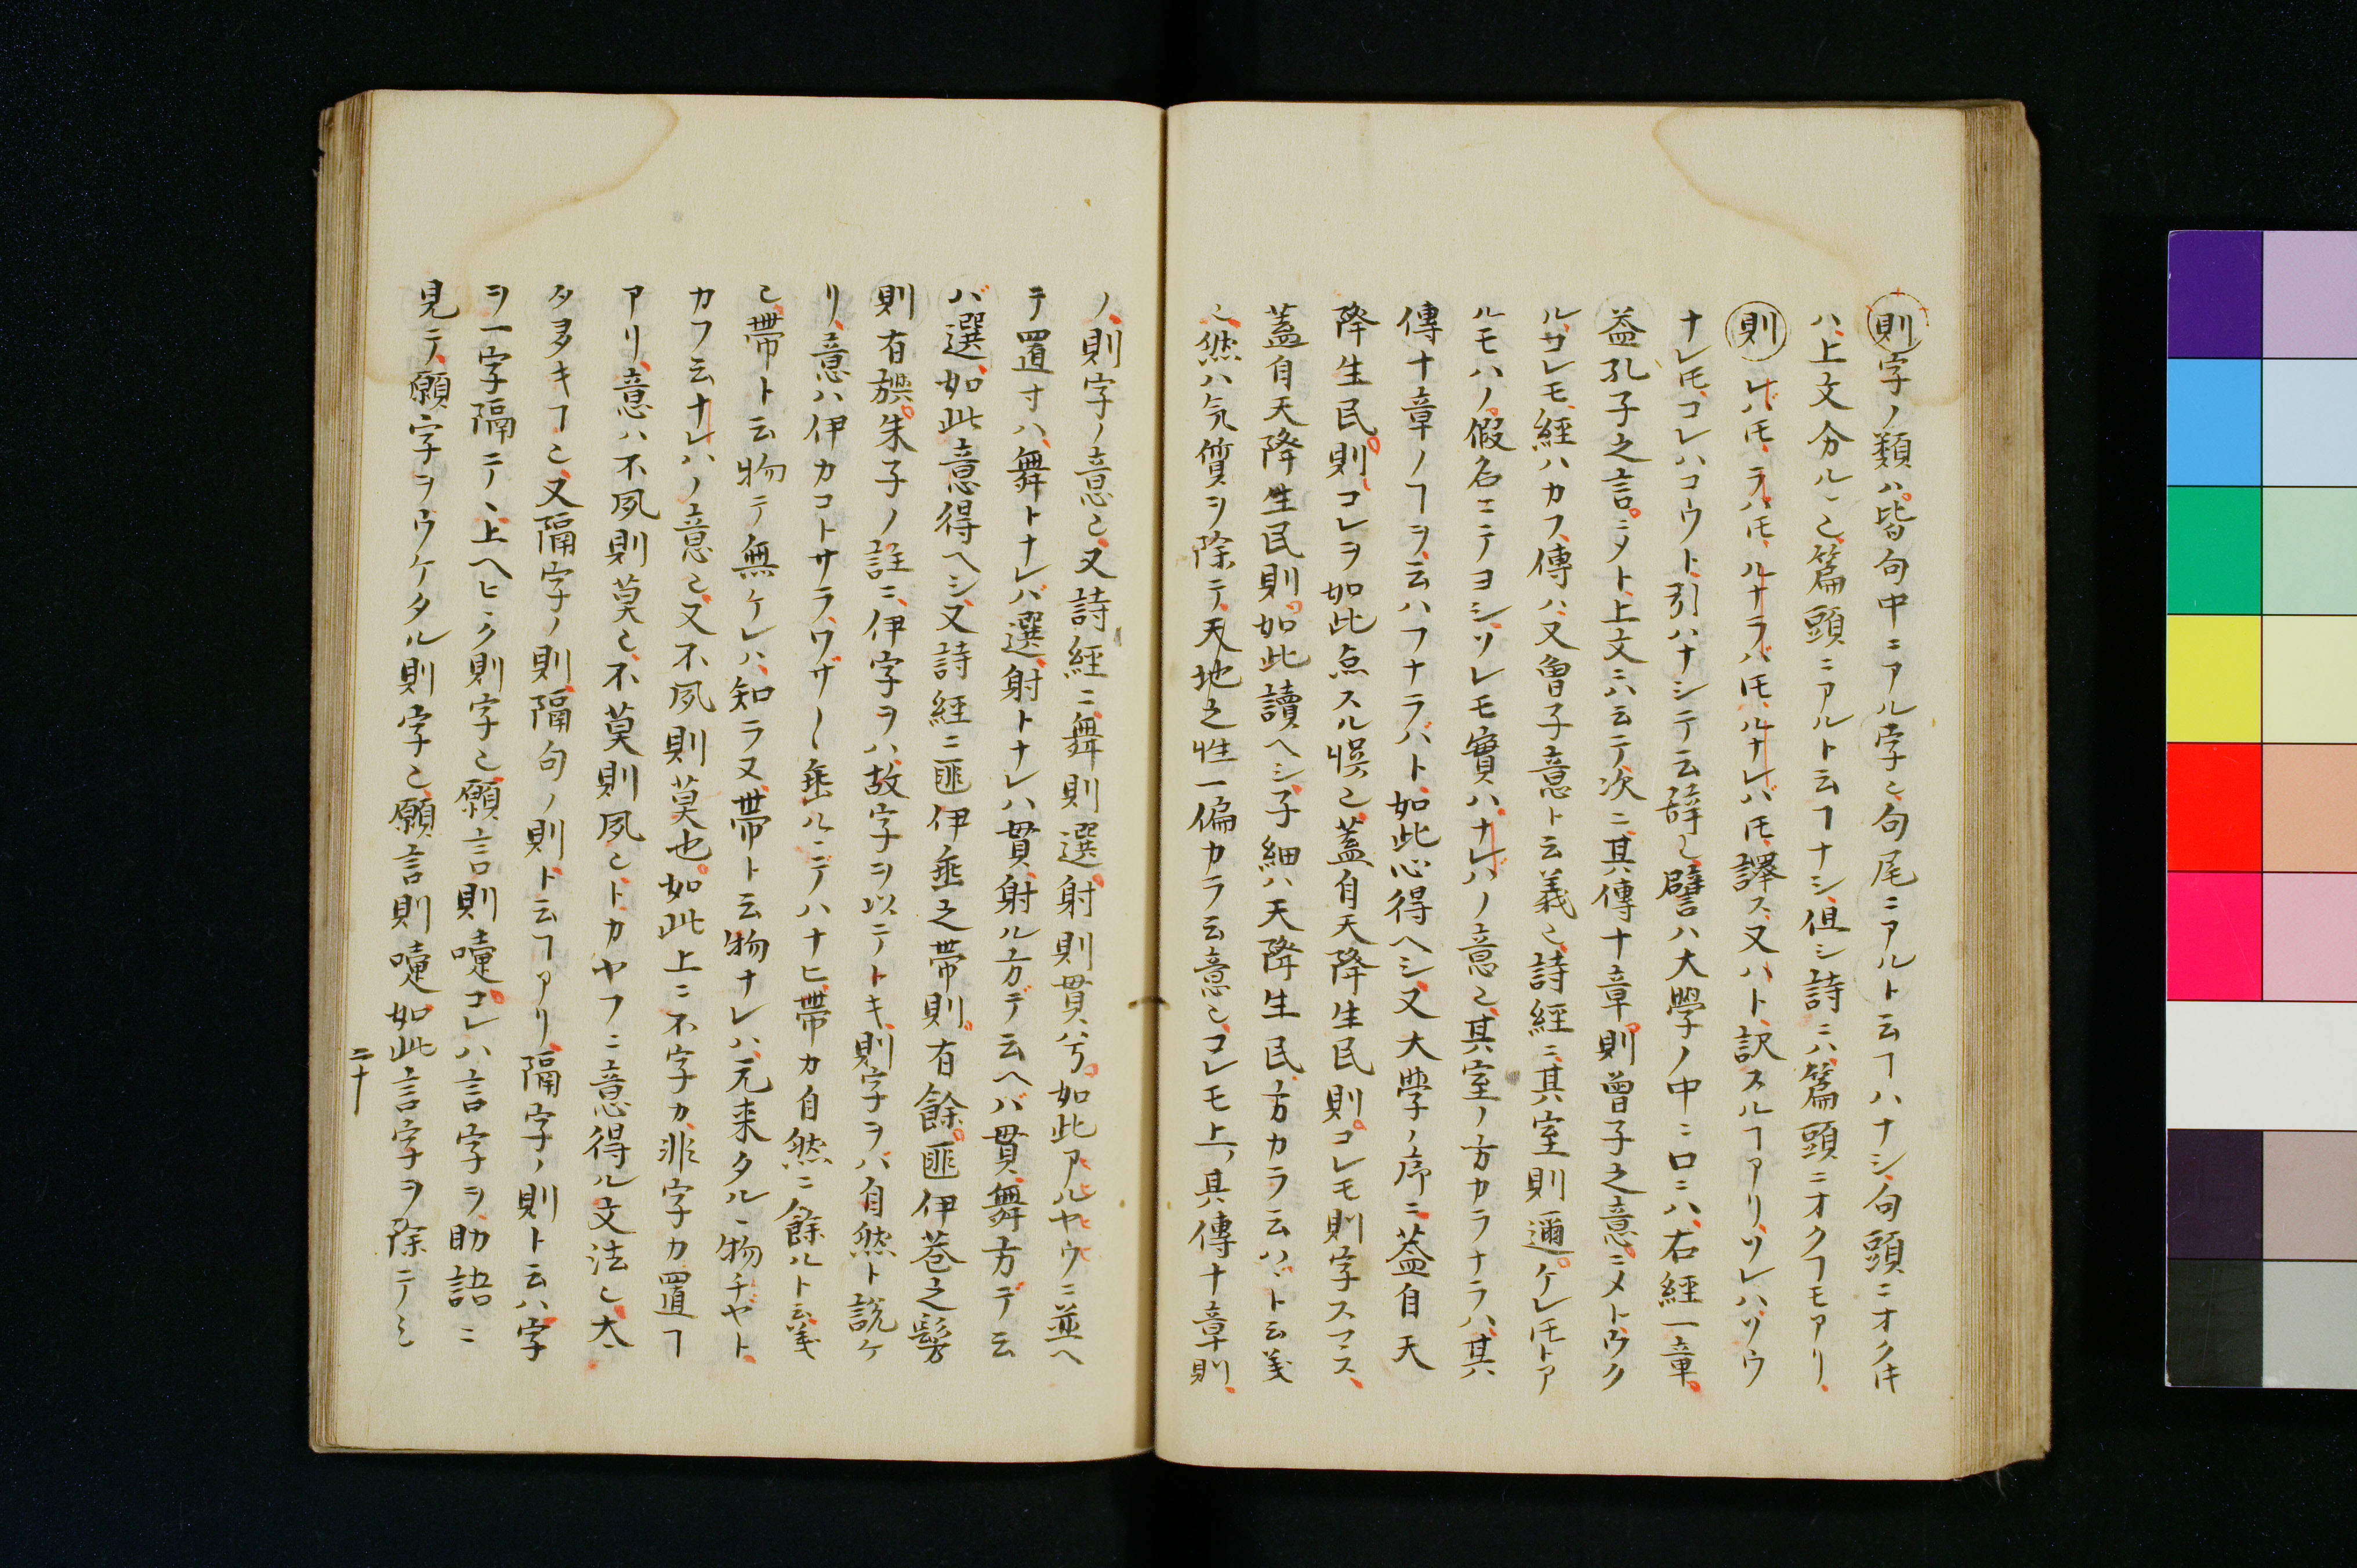 則字ノ類ハ皆句中ニアル字也句尾ニアルト云ヿハナシ句頭ニオクキ
ハ上文分ル、也篇頭ニアルト云ヿナシ但シ詩ニハ篇頭ニオクヿモアリ
則 レハ𪜈ラハ𪜈ルナラバ𪜈ルナレハ𪜈譯ス又ハト訳スルヿアリソレハソウ
ナレ𪜈コレハコウト引ハナシテ云辞也譬ハ大學ノ中ニロニハ右經一章
蓋孔子之言ニメト上文ニハ云テ次ニ其傳十章則曽子之意ニメトウク
ルゴレモ經ハカフ傳ハ又曽子意ト云義也詩經ニ其室則邇ケレ𪜈トア
ルモハノ假名ニテヨシソレモ實ハナレハノ意也其室ノ方カラナラハ其
傳十章ノヿヲ云ハフナラバト如此心得ヘシ又大學ノ序ニ蓋自天
降生民則コレヲ如此点スル悞也蓋自天降生民則コレモ則字スマス
蓋自天降生民則如此讀ヘシ子細ハ天降生民方カラ云ハバト云義
也然ハ気質ヲ除テ天地之性一偏カラ云意也コレモ上ノ其傳十章則
ノ則字ノ意也又詩經ニ舞則選射則貫ハ兮如此アルヤウニ並ヘ
テ置寸ハ舞トナレバ選射トナレハ貫射ル方デ云ヘバ貫舞方デ云
バ選如此意得ヘシ又詩經ニ匪伊垂之帯則有餘匪伊巻之髪
則有旟朱子ノ註ニ伊字ヲハ故字ヲ以テトキ則字ヲバ自然ト説ケ
リ意ハ伊カコトサラワザ〱垂ルニテハナヒ帯カ自然ニ餘ルト云義
也帯ト云物テ無ケレハ知ラヌ帯ト云物ナレハ元来タル、物チヤト
カフ云ナレハノ意也又不夙則莫也如此上ニ不字カ非字カ置ヿ
アリ意ハ不夙則莫也不莫則夙也トカヤフニ意得ル文法也大
夕多キヿ也又隔字ノ則隔句ノ則ト云ヿアリ隔字ノ則ト云ハ字
ヲ一字隔テ、上ヘヒヾク則字也願言則嚔コレハ言字ヲ助語ニ
見テ願字ヲウケタル則字也願言則嚔如此言字ヲ除テミ
二十